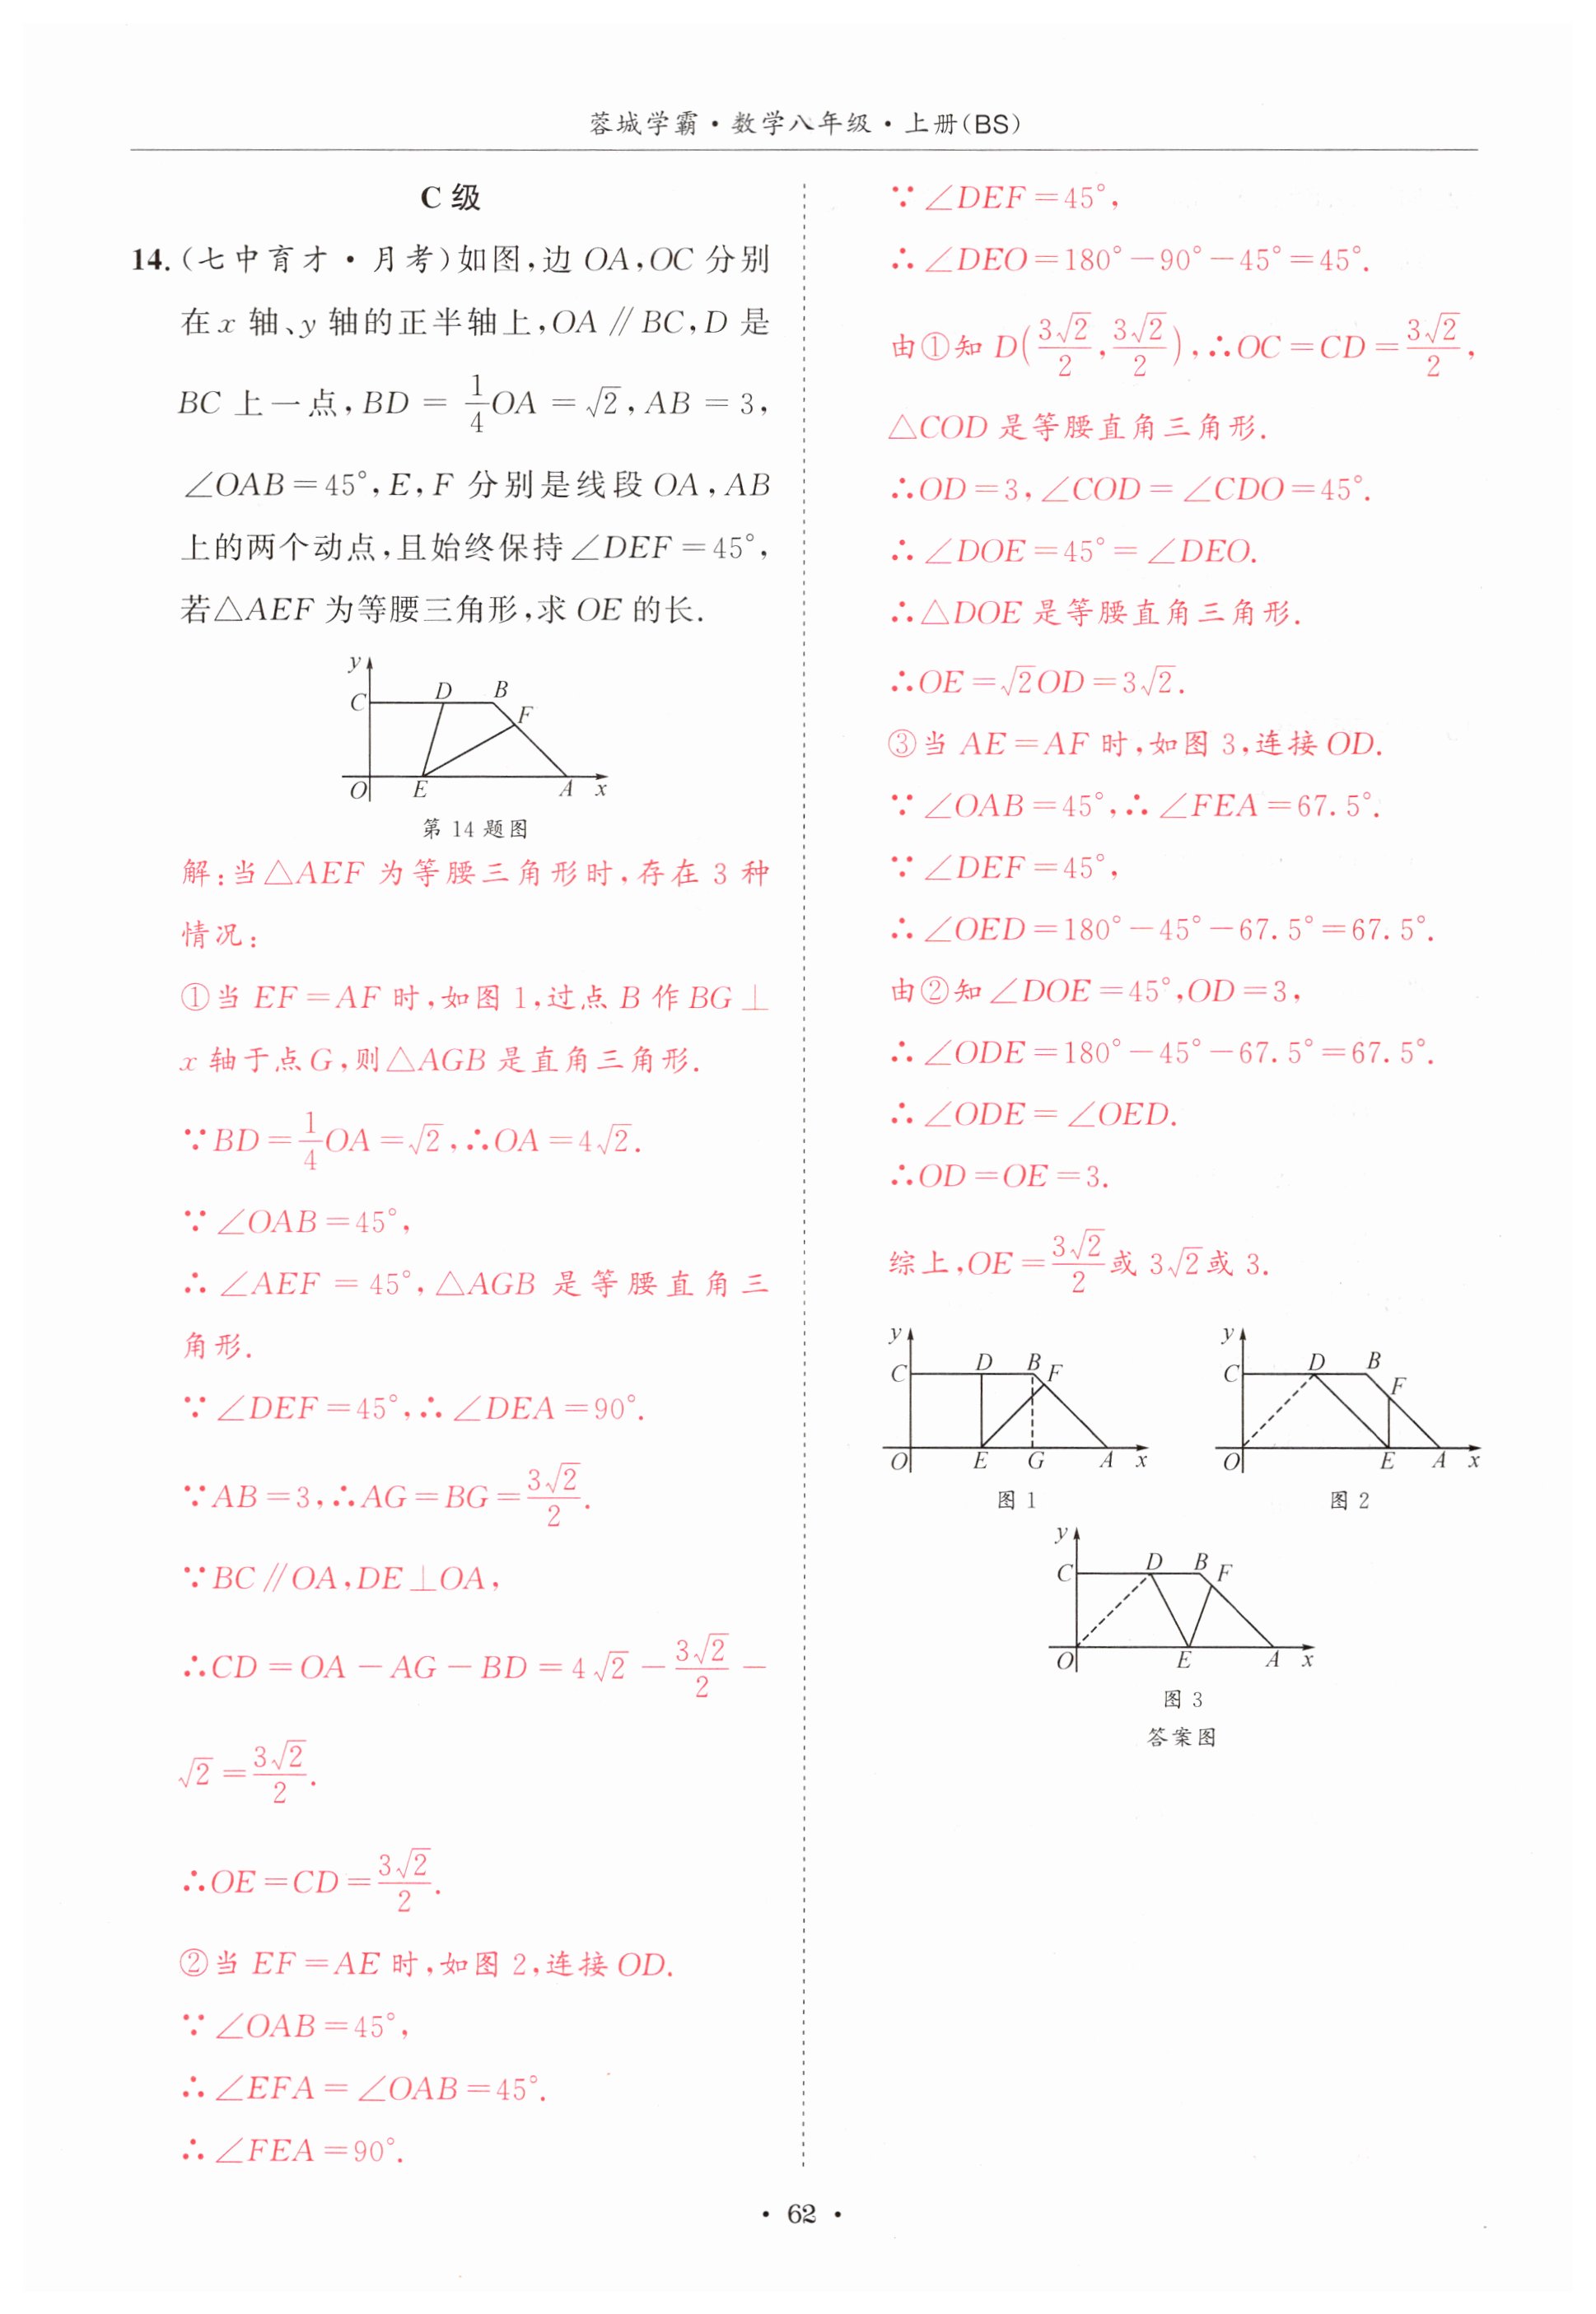 蓉城学霸·数学八年级·上册(BS)
C 级
14.(七中育才·月考)如图,边 OA,OC 分别
在 x 轴、y 轴的正半轴上,OA∥BC,D 是
BC 上一点,BD=\frac{1}{4}OA=√2,AB=3,
∠OAB=45°,E,F 分别是线段 OA,AB
上的两个动点,且始终保持∠DEF=45°,
若△AEF 为等腰三角形,求 OE 的长.
y
C D B
F
O E A x
第 14 题图
解:当△AEF 为等腰三角形时,存在 3 种
情况:
①当 EF=AF 时,如图 1,过点 B 作 BG⊥
x 轴于点 G,则△AGB 是直角三角形.
∵BD=\frac{1}{4}OA=√2,∴OA=4√2.
∵∠OAB=45°,
∴∠AEF=45°,△AGB 是等腰直角三
角形.
∵∠DEF=45°,∴∠DEA=90°.
∵AB=3,∴AG=BG=\frac{3√2}{2}.
∵BC∥OA,DE⊥OA,
∴CD=OA-AG-BD=4√2-\frac{3√2}{2}-
√2=\frac{3√2}{2}.
∴OE=CD=\frac{3√2}{2}.
②当 EF=AE 时,如图 2,连接 OD.
∵∠OAB=45°,
∴∠EFA=∠OAB=45°.
∴∠FEA=90°.
∵∠DEF=45°,
∴∠DEO=180°-90°-45°=45°.
由①知 D(\frac{3√2}{2},\frac{3√2}{2}),∴OC=CD=\frac{3√2}{2},
△COD 是等腰直角三角形.
∴OD=3,∠COD=∠CDO=45°.
∴∠DOE=45°=∠DEO.
∴△DOE 是等腰直角三角形.
∴OE=√2OD=3√2.
③当 AE=AF 时,如图 3,连接 OD.
∵∠OAB=45°,∴∠FEA=67.5°.
∵∠DEF=45°,
∴∠OED=180°-45°-67.5°=67.5°.
由②知∠DOE=45°,OD=3,
∴∠ODE=180°-45°-67.5°=67.5°.
∴∠ODE=∠OED.
∴OD=OE=3.
综上,OE=\frac{3√2}{2}或 3√2或 3.
y
C D B F
O E G A x
图 1
y
C D B
F
O E A x
图 2
y
C D B F
O E A x
图 3
答案图
·62·